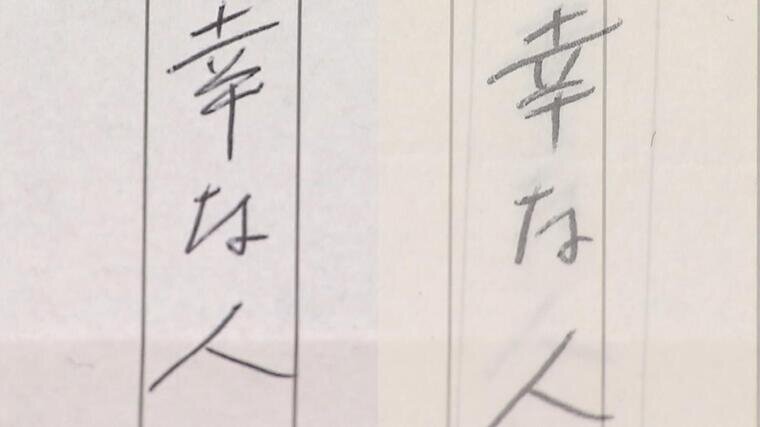 幸な人
幸な人